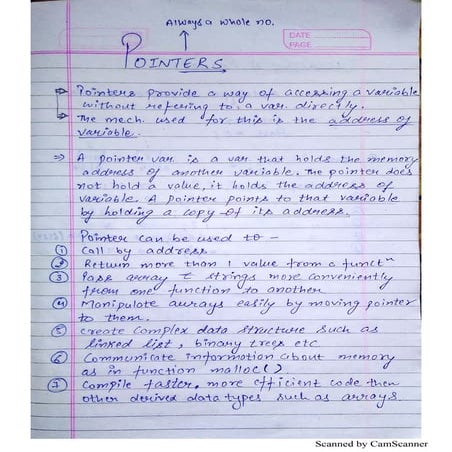 Always a whole no.
DATE
PAGE
POINTERS
Pointers provide a way of accessing a variable
without refering to a var. directly.
The mech. used for this is the address of
variable.
⇒ A pointer var. is a var that holds the memory
address of another variable. The pointer does
not hold a value, it holds the address of
variable. A pointer points to that variable
by holding a copy of its address.
Pointer can be used to –
① Call by address
② Return more than 1 value from a functⁿ
③ Pass array & strings more conveniently
from one function to another
④ Manipulate arrays easily by moving pointer
to them.
⑤ create complex data structure such as
linked list, binary trees etc
⑥ Communicate information about memory
as in function malloc()
⑦ Compile faster, more efficient code then
other derived data types such as arrays
Scanned by CamScanner